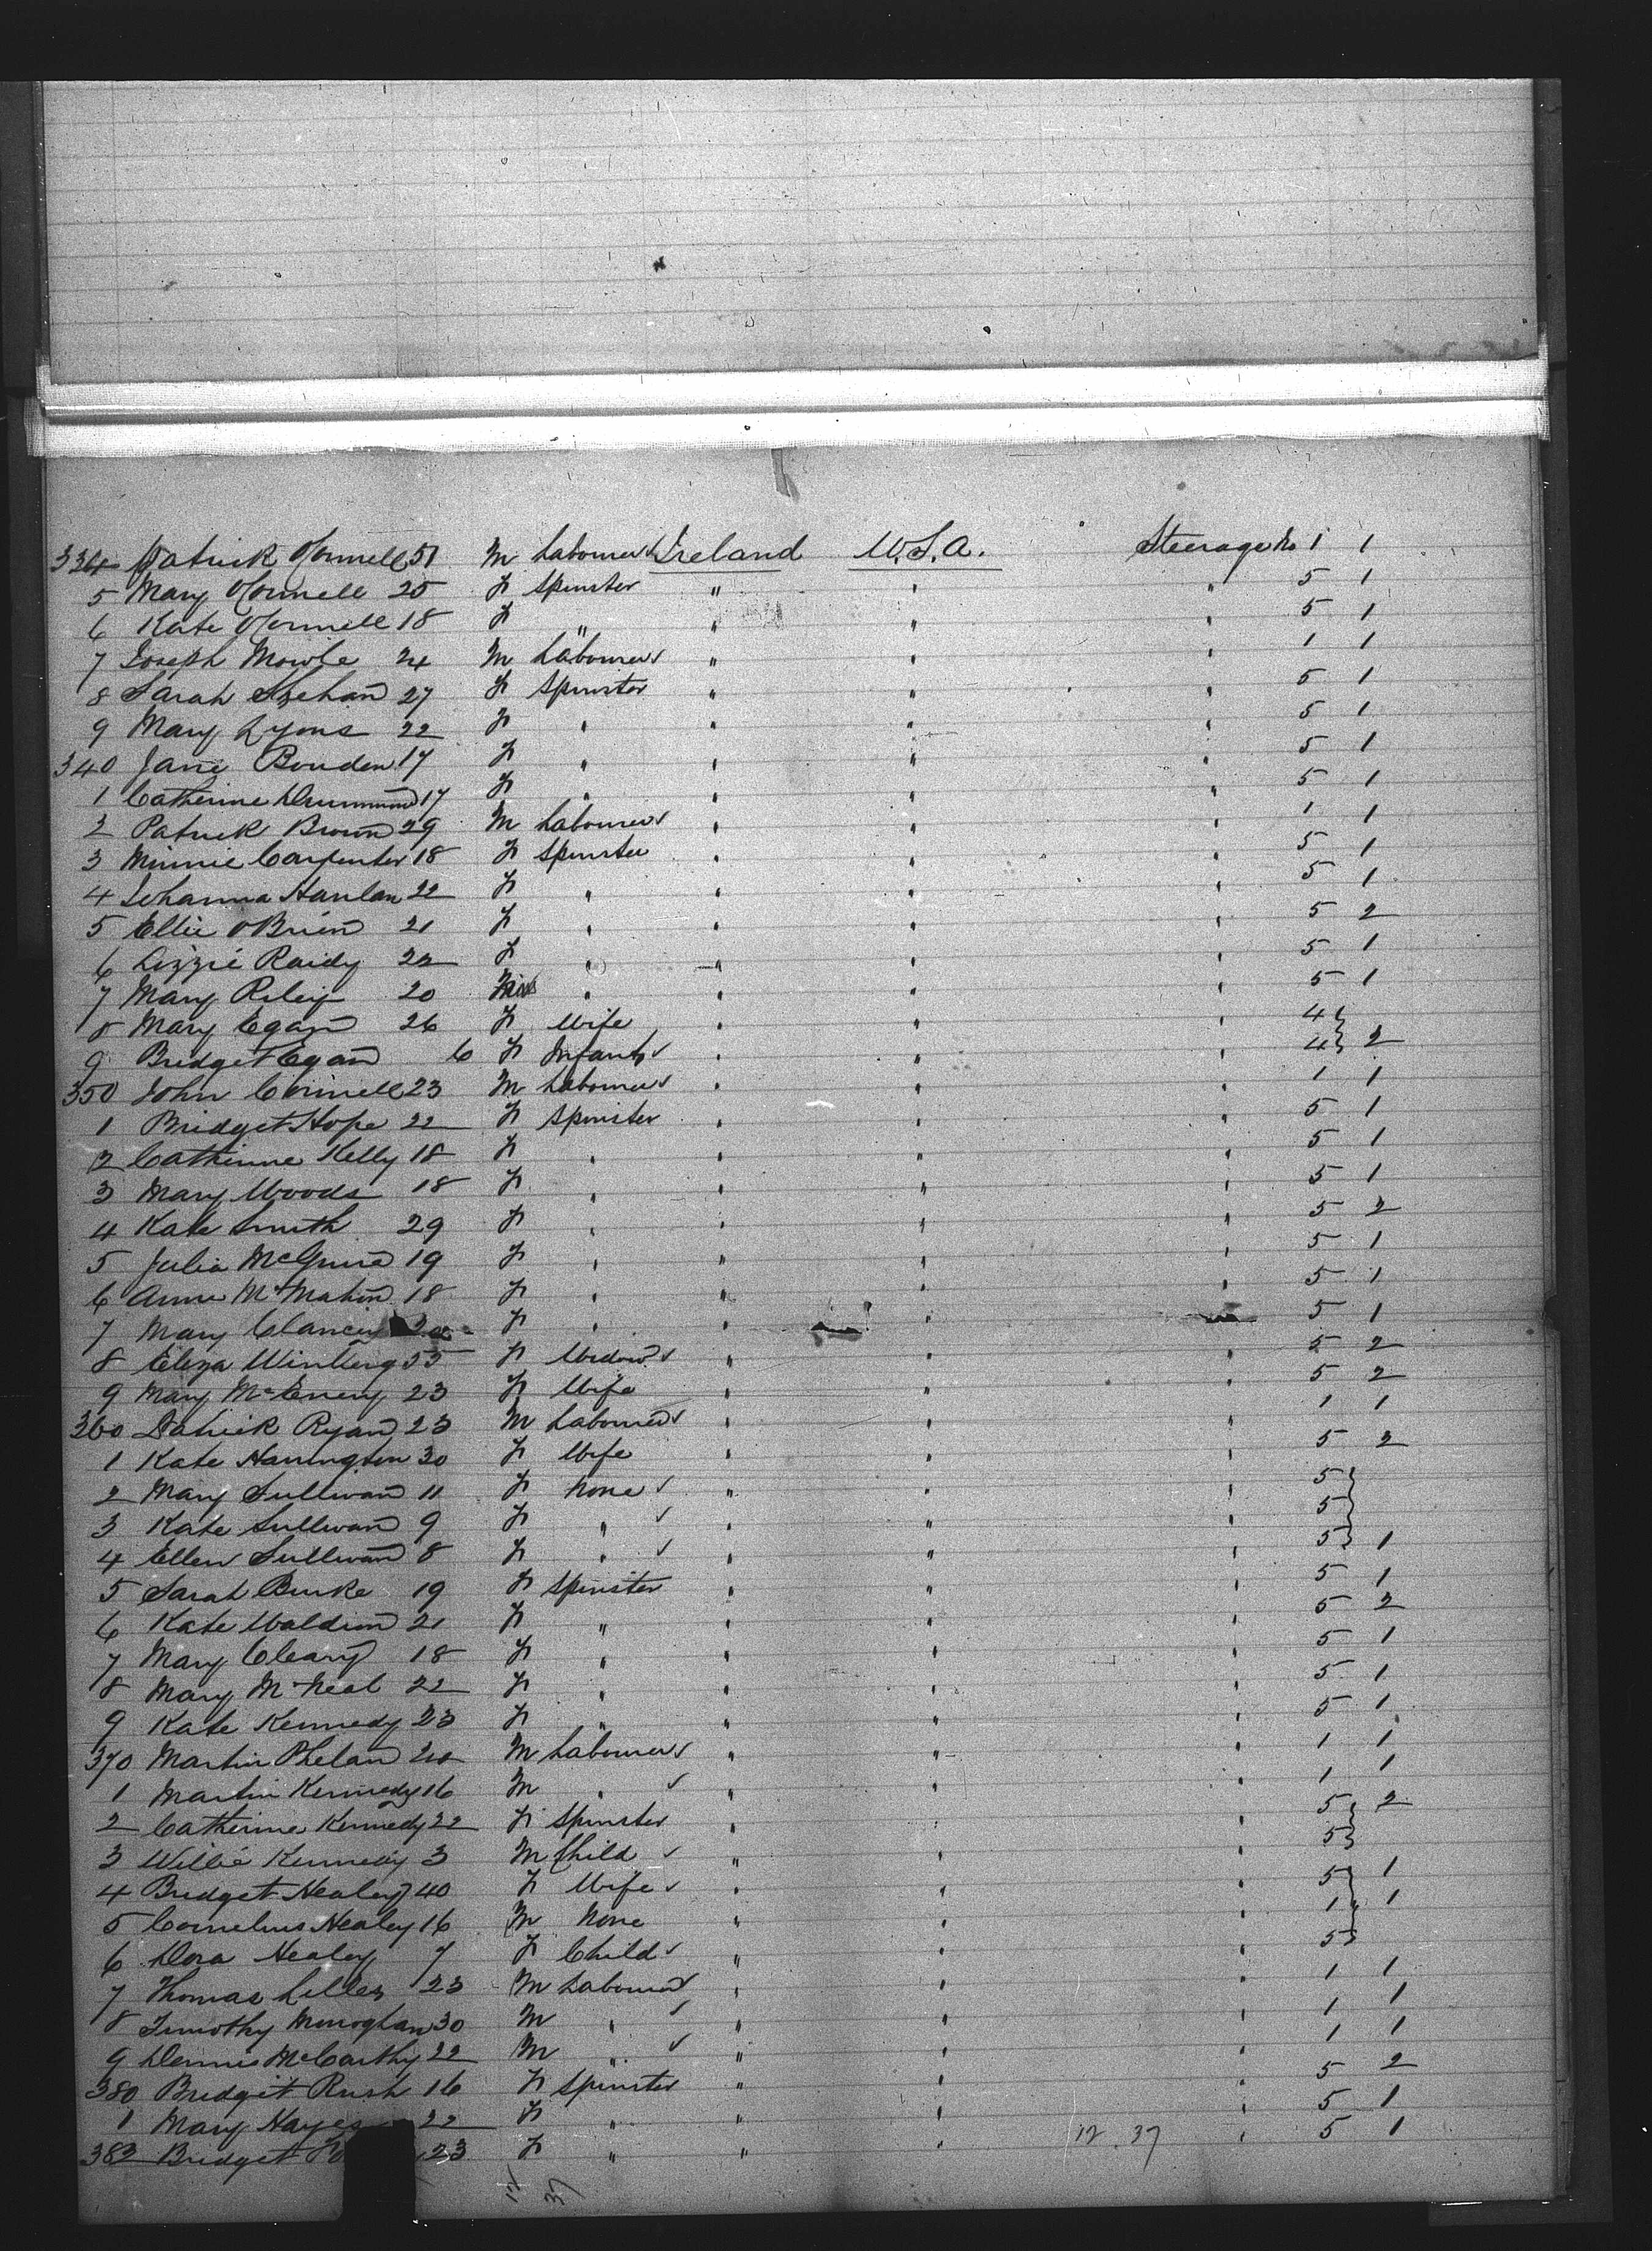 334 Patrick O'Connell 51 M Labourer Ireland U.S.A. Steerage No 1 1
5 Mary O'Connell 25 F Spinster " " " 5 1
6 Kate O'Connell 18 F " " " " 5 1
7 Joseph 24 M Labourer " " " 1 1
8 Sarah 27 F Spinster " " " 5 1
9 Mary Lyons 22 F " " " " 5 1
340 Jane 17 F " " " " 5 1
1 Catherine Drummond 17 F " " " " 5 1
2 Patrick Brown 29 M Labourer " " " 1 1
3 Minnie Carpenter 18 F Spinster " " " 5 1
4 Johanna Hanlan 22 F " " " " 5 1
5 Ellie O'Brien 21 F " " " " 5 2
6 Lizzie Raidy 22 F " " " " 5 1
7 Mary Riley 20 " " " " 5 1
8 Mary Egan 26 F Wife " " " 4
9 Bridget Egan 6 F Infant " " " 4 2
350 John Connell 23 M Labourer " " " 1 1
1 Bridget Hope 22 F Spinster " " " 5 1
2 Catherine Kelly 18 F " " " " 5 1
3 Mary Woods 18 F " " " " 5 1
4 Kate Smith 29 F " " " " 5 2
5 Julia McGuire 19 F " " " " 5 1
6 Anne McMahon 18 F " " " " 5 1
7 Mary Clancey F " " " " 5 1
8 Eliza Winberg 55 F Widow " " " 5 2
9 Mary McEnery 23 F Wife " " " 5 2
360 Patrick Ryan 23 M Labourer " " " 1 1
1 Kate Harrington 30 F Wife " " " 5 2
2 Mary Sullivan 11 F None " " " 5
3 Kate Sullivan 9 F " " " " 5
4 Ellen Sullivan 8 F " " " " 5 1
5 Sarah Burke 19 F Spinster " " " 5 1
6 Kate Waldron 21 F " " " " 5 2
7 Mary Cleary 18 F " " " " 5 1
8 Mary McNeal 22 F " " " " 5 1
9 Kate Kennedy 23 F " " " " 5 1
370 Martin Phelan M Labourer " " " 1 1
1 Martin Kennedy 16 M " " " " 1 1
2 Catherine Kennedy 22 F Spinster " " " 5 2
3 Willie Kennedy 3 M Child " " " 5
4 Bridget Healey 40 F Wife " " " 5 1
5 Cornelius Healey 16 M None " " " 1 1
6 Dora Healey 7 F Child " " " 5
7 Thomas 23 M Labourer " " " 1 1
8 Timothy Monoghan 30 M " " " " 1 1
9 Dennis McCarthy 22 M " " " " 1 1
380 Bridget Rush 16 F Spinster " " " 5 2
1 Mary Hayes 22 F " " " " 5 1
383 Bridget 23 F " " " 12.37 " 5 1
12 37